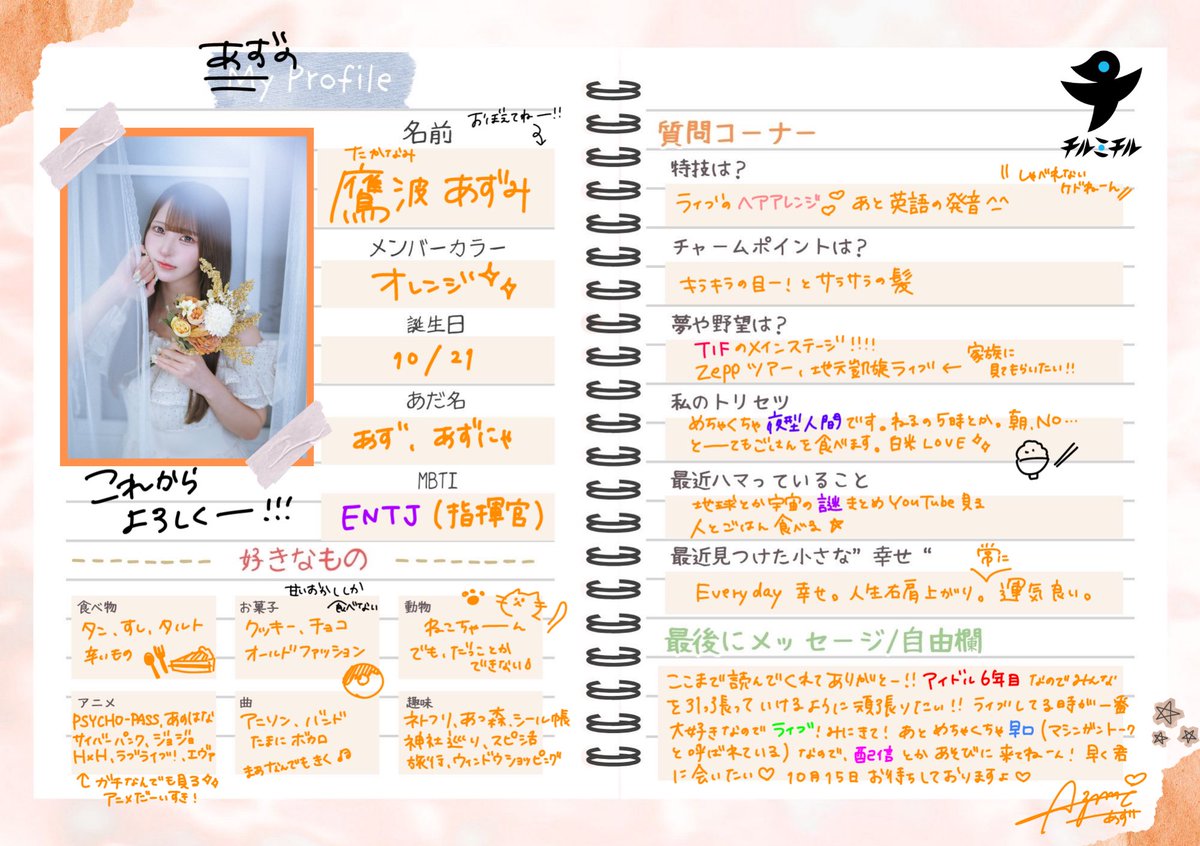 あずの
My Profile
名前
おぼえてねー!!
たかなみ
鷹波 あずみ
メンバーカラー
オレンジ
誕生日
10/21
あだ名
あず、あずにゃ
MBTI
ENTJ (指揮官)
これから
よろしくー!!!
好きなもの
食べ物
タン、すし、タルト
辛いもの
お菓子
甘いおかししか
食べない
クッキー、チョコ
オールドファッション
動物
ねこちゃーーん
でも、だっこが
できない
アニメ
PSYCHO-PASS,あのはな
サイバーパンク、ジョジョ
H×H、ラブライブ!、エヴァ
↑ガチなんでも見る
アニメだーいすき!
曲
アニソン、バンド
たまにボカロ
まぁなんでもきく♪
趣味
ネトフリ、あつ森、シール帳
神社巡り、スピ活
旅行、ウィンドウショッピング
チルミチル
質問コーナー
特技は?
ライブのヘアアレンジ♡ あと英語の発音^^
\\しゃべれない
けどねーん//
チャームポイントは?
キラキラの目ー!とサラサラの髪
夢や野望は?
TIFのメインステージ!!!!
Zeppツアー、地元凱旋ライブ ← 家族に
見てもらいたい!!
私のトリセツ
めちゃくちゃ夜型人間です。ねるの5時とか。朝、No…
とーってもごはんを食べます。白米LOVE
最近ハマっていること
地球とか宇宙の謎まとめYouTube見る
人とごはん食べる☆
最近見つけた小さな”幸せ“
常に
Everyday 幸せ。人生右肩上がり。運気良い。
最後にメッセージ/自由欄
ここまで読んでくれてありがとー!!アイドル6年目なのでみんな
を引っ張っていけるように頑張りたい!!ライブしてる時が一番
大好きなのでライブ!みにきて!あとめちゃくちゃ早口(マシンガントーク
と呼ばれている)なので、配信とかあそびに来てねーん!早く君
に会いたい♡ 10月15日お待ちしておりますよ♡
あず